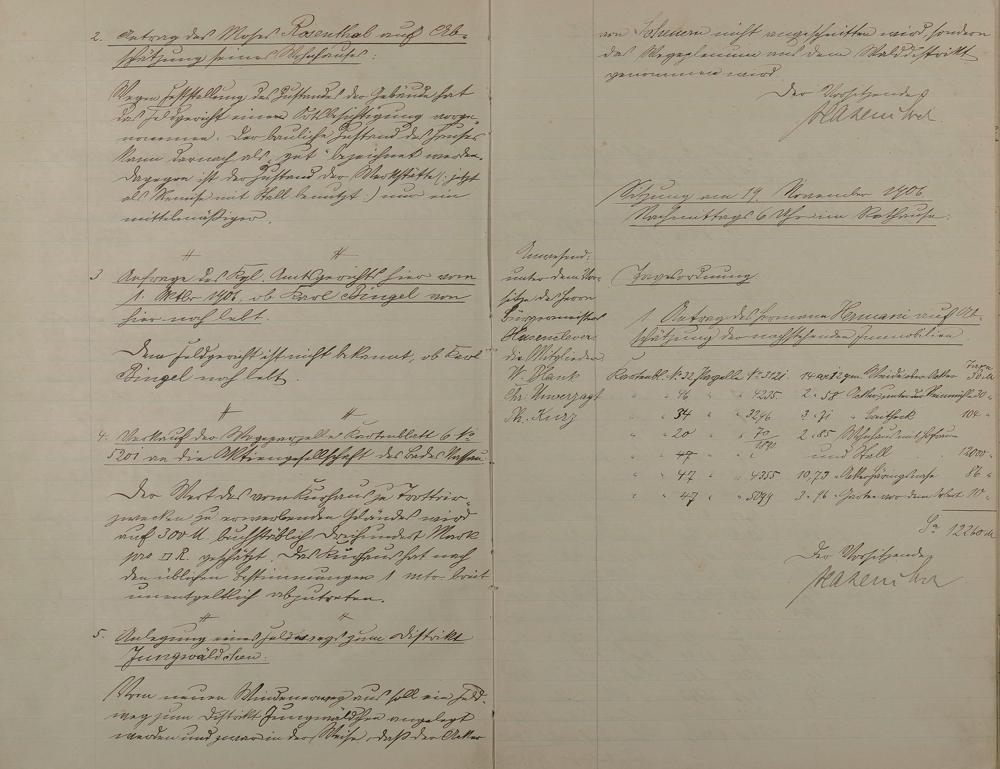 2. Antrag des Moses Rosenthal auf Ab-
schätzung seines Wohnhauses:
Wegen Feststellung des Zustandes der Gebäude hat
das Feldgericht eine Ortsbesichtigung vorge-
nommen. Der bauliche Zustand des Hauses
kann darnach als „gut“ bezeichnet werden.
Dagegen ist der Zustand der Werkstätte (: jetzt
als Remise mit Stall benutzt :) nur ein
mittelmäßiger.
3 Anfrage des Kgl. Amtsgerichts hier vom
1. Oktbr 1906, ob Karl Bingel von
hier noch lebt.
Dem Feldgericht ist nicht bekannt, ob Karl
Bingel noch lebt.
4. Verkauf der Wegeparzelle Kartenblatt 6 No
5201 an die Aktiengesellschaft des Bades Nassau
Der Wert des vom Kurhaus zu
zwecken zu erwerbenden Geländes wird
auf 300 M buchstäblich Dreihundert Mark
pro □ R. geschätzt. Das Kurhaus hat nach
den üblichen Bestimmungen 1 mtr breit
unentgeltlich abzutreten.
5. Anlegung eines Feldwegs zum Distrikt
Jungwäldchen.
Vom neuen Windenerweg aus soll ein Feld-
weg zum Distrikt Jungwäldchen angelegt
werden und zwar in der Weise, daß der Acker
von nicht angeschnitten wird, sondern
das Wegegelände aus dem Walddistrikt
genommen wird
Der Vorsitzende
Hasenclever
Sitzung am 19. November 1906
Nachmittags 6 Uhr im Rathause:
Anwesend:
unter dem Vor-
sitze des Herrn
Bürgermeisters
Hasenclever
die Mitglieder
W. Plank
Chr. Unverzagt
Ph. Kurz
Tagesordnung
1. Antrag des Hermani auf Ab-
schätzung der nachstehenden Immobilien
Taxe
Kartenbl. No 32 Parzelle No 3121 14 ar 12 qm Weide oder Acker 30 M
" " 46 " " 4235 2 " 58 Acker unter 30 "
" " 34 " " 3246 3 " 71 " 104 "
" " 20 " " 70 2 " 85 Wohnhaus mit Hofraum
und Stall 12000 "
" " 47 " " 4355 10,73 Acker 86 "
" " 47 " " 5099 3 " 76 Garten vor dem 10 "
Sa 12260 M
Der Vorsitzende
Hasenclever